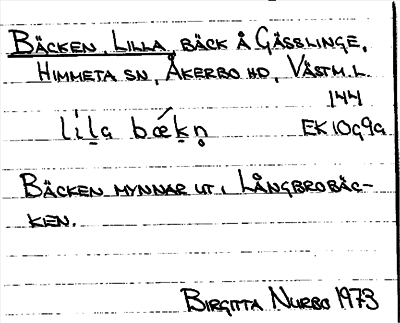 BÄCKEN, LILLA, BÄCK Å GÄSSLINGE,
HIMMETA SN, ÅKERBO HD, VÄSTM. L.
144
lila bækn EK 10G9a
BÄCKEN MYNNAR UT I LÅNGBROBÄC-
KEN.
BIRGITTA NURBO 1973